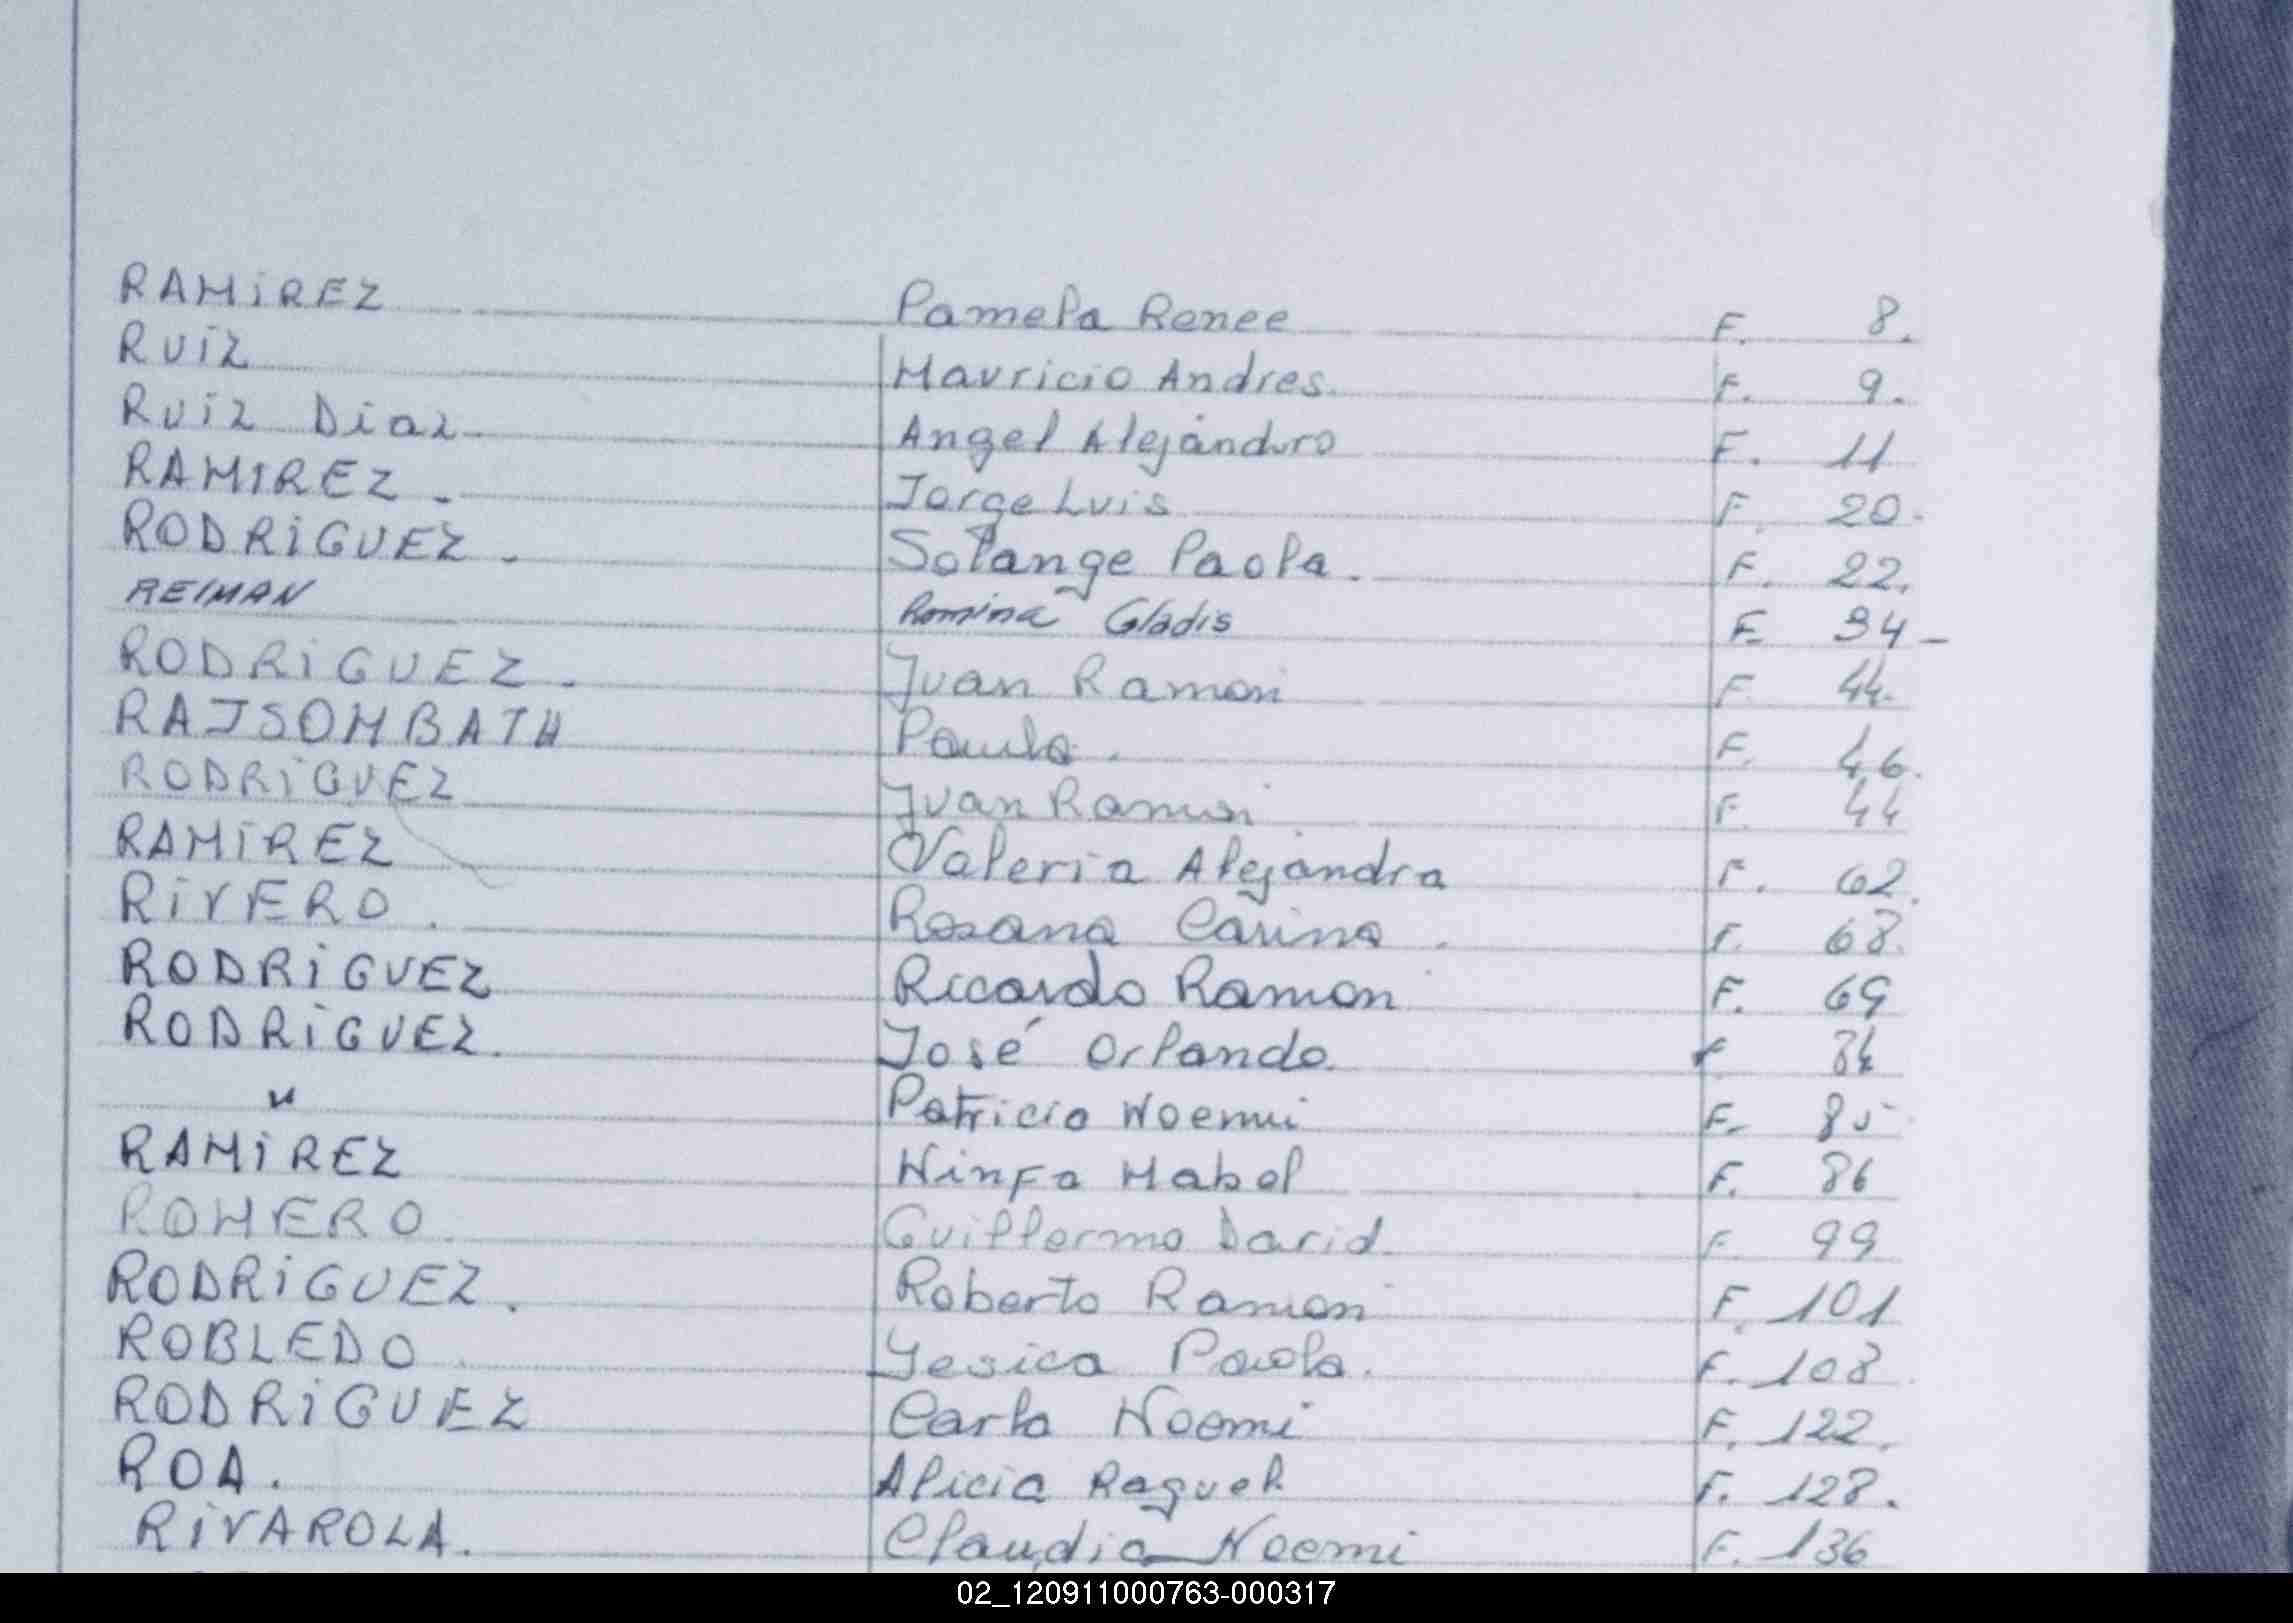 RAMiREZ Pamela Renee F. 8.
RUiZ Mauricio Andres. F. 9.
RUiZ Diaz Angel Alejandro F. 11
RAMIREZ. Jorge Luis F. 20.
RODRiGUEZ. Solange Paola. F. 22.
REIMAN Romina Gladis F. 34-
RODRiGUEZ. Juan Ramon F. 44.
RAJSOMBATH Paula. F. 46.
RODRiGUEZ Juan Ramon F. 44
RAMiREZ Valeria Alejandra F. 62.
RiVERO. Rosana Carina. F. 68.
RODRiGUEZ Ricardo Ramon F. 69
RODRiGUEZ. José Orlando. F 84
" Patricia Noemi F. 85
RAMiREZ Ninfa Mabel F. 86
ROMERO. Guillermo David. F. 99
RODRiGUEZ. Roberto Ramon F. 101
ROBLEDO. Yesica Paola. F. 108
RODRiGUEZ Carla Noemi F. 122.
ROA. Alicia Raquel. F. 128.
RiVAROLA. Claudia Noemi F. 136
02_120911000763-000317